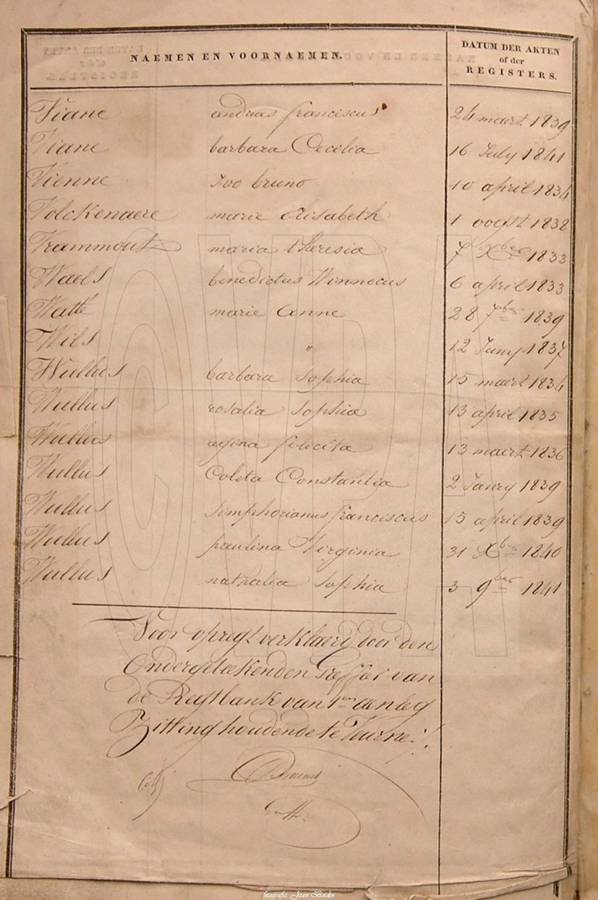 NAEMEN EN VOORNAEMEN.
DATUM DER AKTEN
of der
REGISTERS.
Tiane andreas franciscus 24 maart 1839
Tiane barbara Cecilia 16 July 1841
Tienne Ivo bruno 10 april 1834
Tolckenaere marie Elisabeth 1 oogst 1838
Trammout maria theresia 7 Xber 1833
Waels benedictus Winnocus 6 april 1833
Watté marie Anne 28 7ber 1839
Wils " 12 Juny 1837
Wullus barbara Sophia 15 maart 1834
Wullus rosalia Sophia 13 april 1835
Wullus felicita 13 maert 1836
Wullus Coleta Constantia 2 Janry 1839
Wullus Simphorianus franciscus 15 april 1839
Wullus paulina Virginia 31 Xber 1840
Wullus nathalia Sophia 3 9ber 1841
Voor opregt verklaerd door den
Ondergeteekenden Greffier van
de Regtbank van 1en aenleg
Zitting houdende te Veurne.